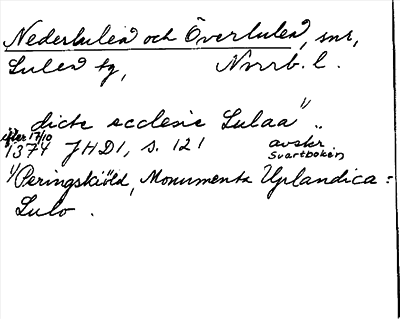 Nederluleå och Överluleå, snr,
Luleå tg, Nrrb. l.
dicte ecclesie Lulaa 1) ..
efter 17/10
1374 JHD1, s. 121 avskr
Svartboken
1) Peringskiöld, Monumenta Uplandica:
Lulo.